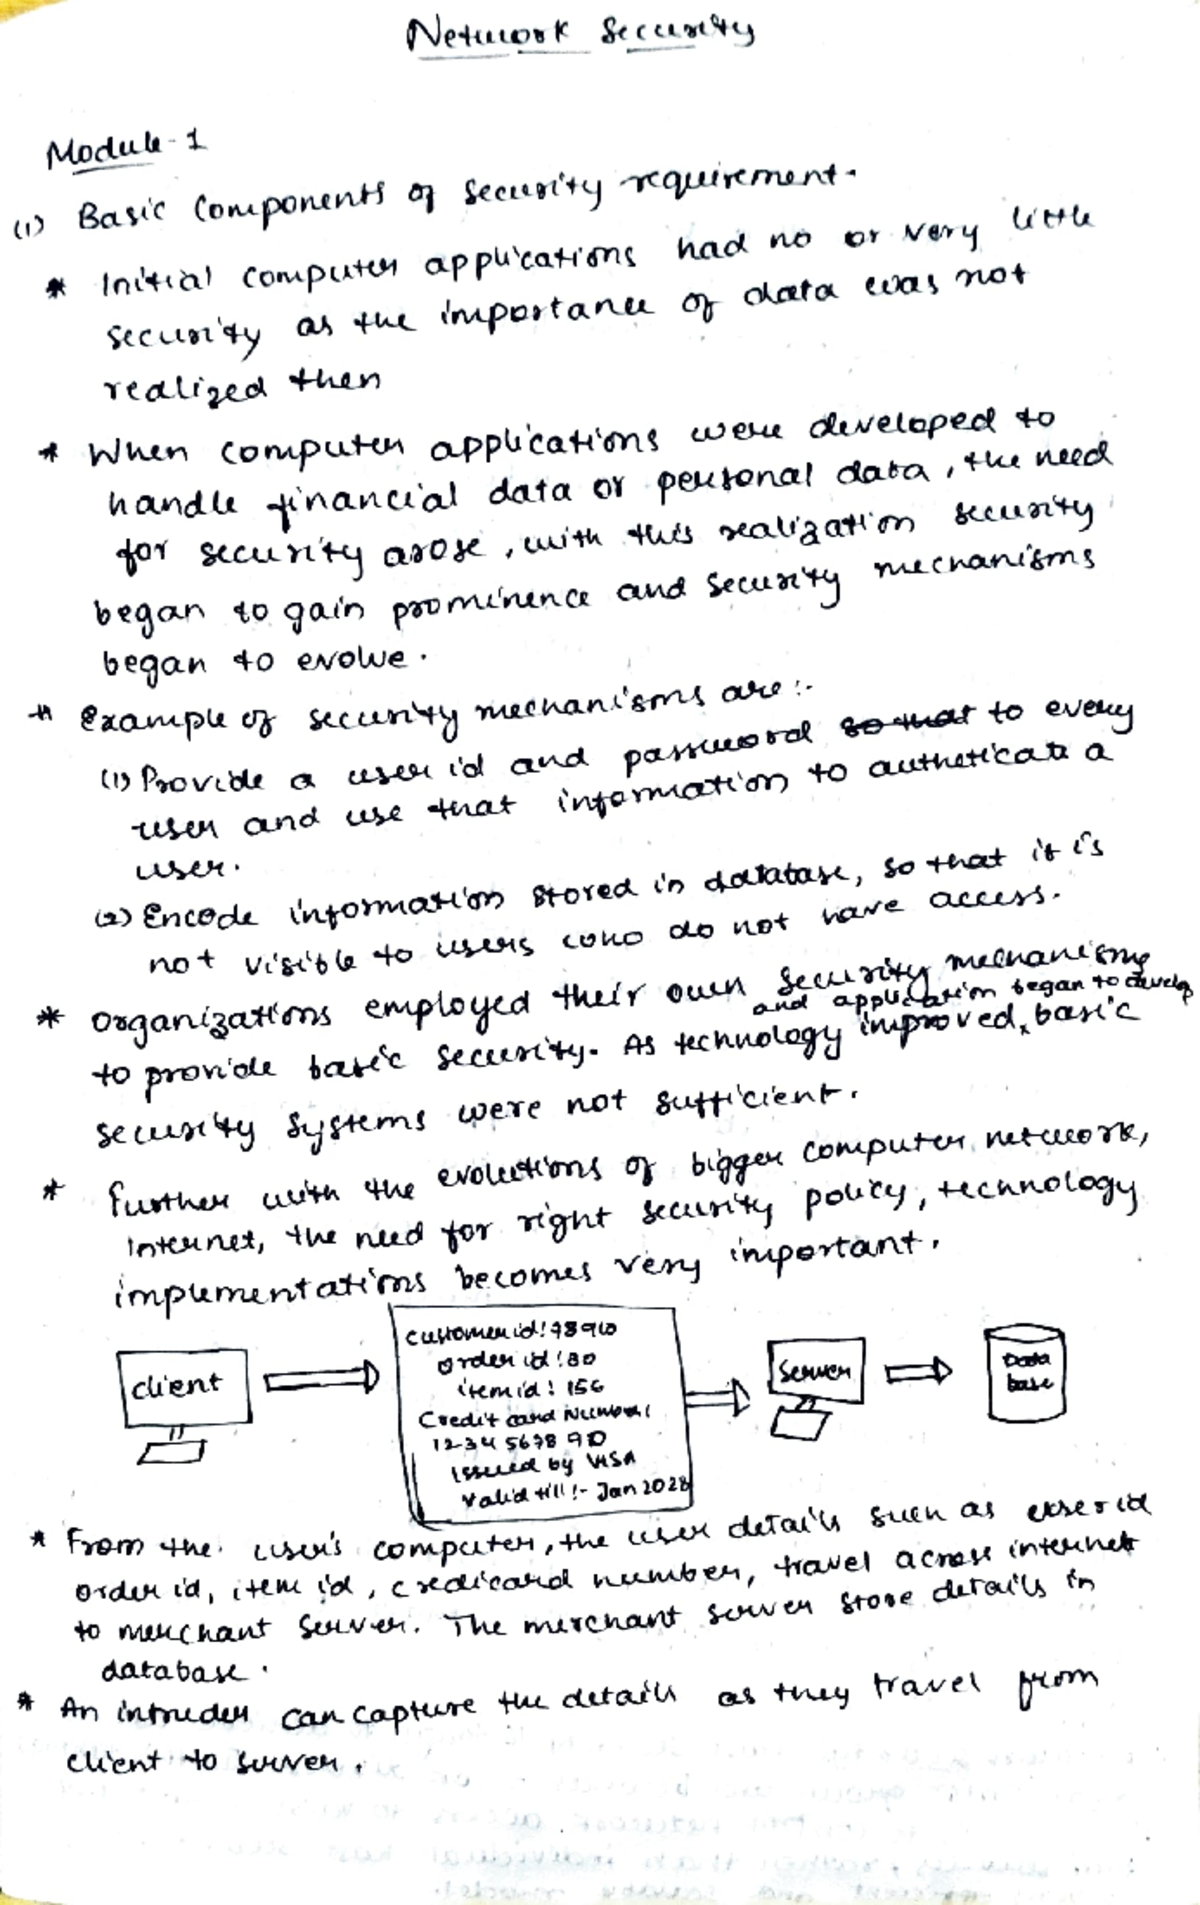 Network Security
Module-1
(1) Basic Components of security requirement.
* Initial computer applications had no or very little
security as the importance of data was not
realized then
* When computer applications were developed to
handle financial data or personal data, the need
for security arose, with this realization security
began to gain prominence and security mechanisms
began to evolve.
* Example of security mechanisms are :-
(1) Provide a user id and password so that to every
user and use that information to autheticate a
user.
(2) Encode information stored in database, so that it is
not visible to users who do not have access.
* Organizations employed their own security mechanisms
and application began to develop
to provide basic security. As technology improved, basic
security systems were not sufficient.
* Further with the evolutions of bigger computer network,
internet, the need for right security policy, technology
implementations becomes very important.
client
customer id:
order id : 80
item id : 156
Credit card Number:
1234 5678 90
Issued by VISA
valid till :- Jan 2028
Server
Data
base
* From the user's computer, the user details such as
order id, item id, credicard number, travel across internet
to merchant server. The merchant server store details in
database.
* An intruder can capture the details as they travel from
client to server.